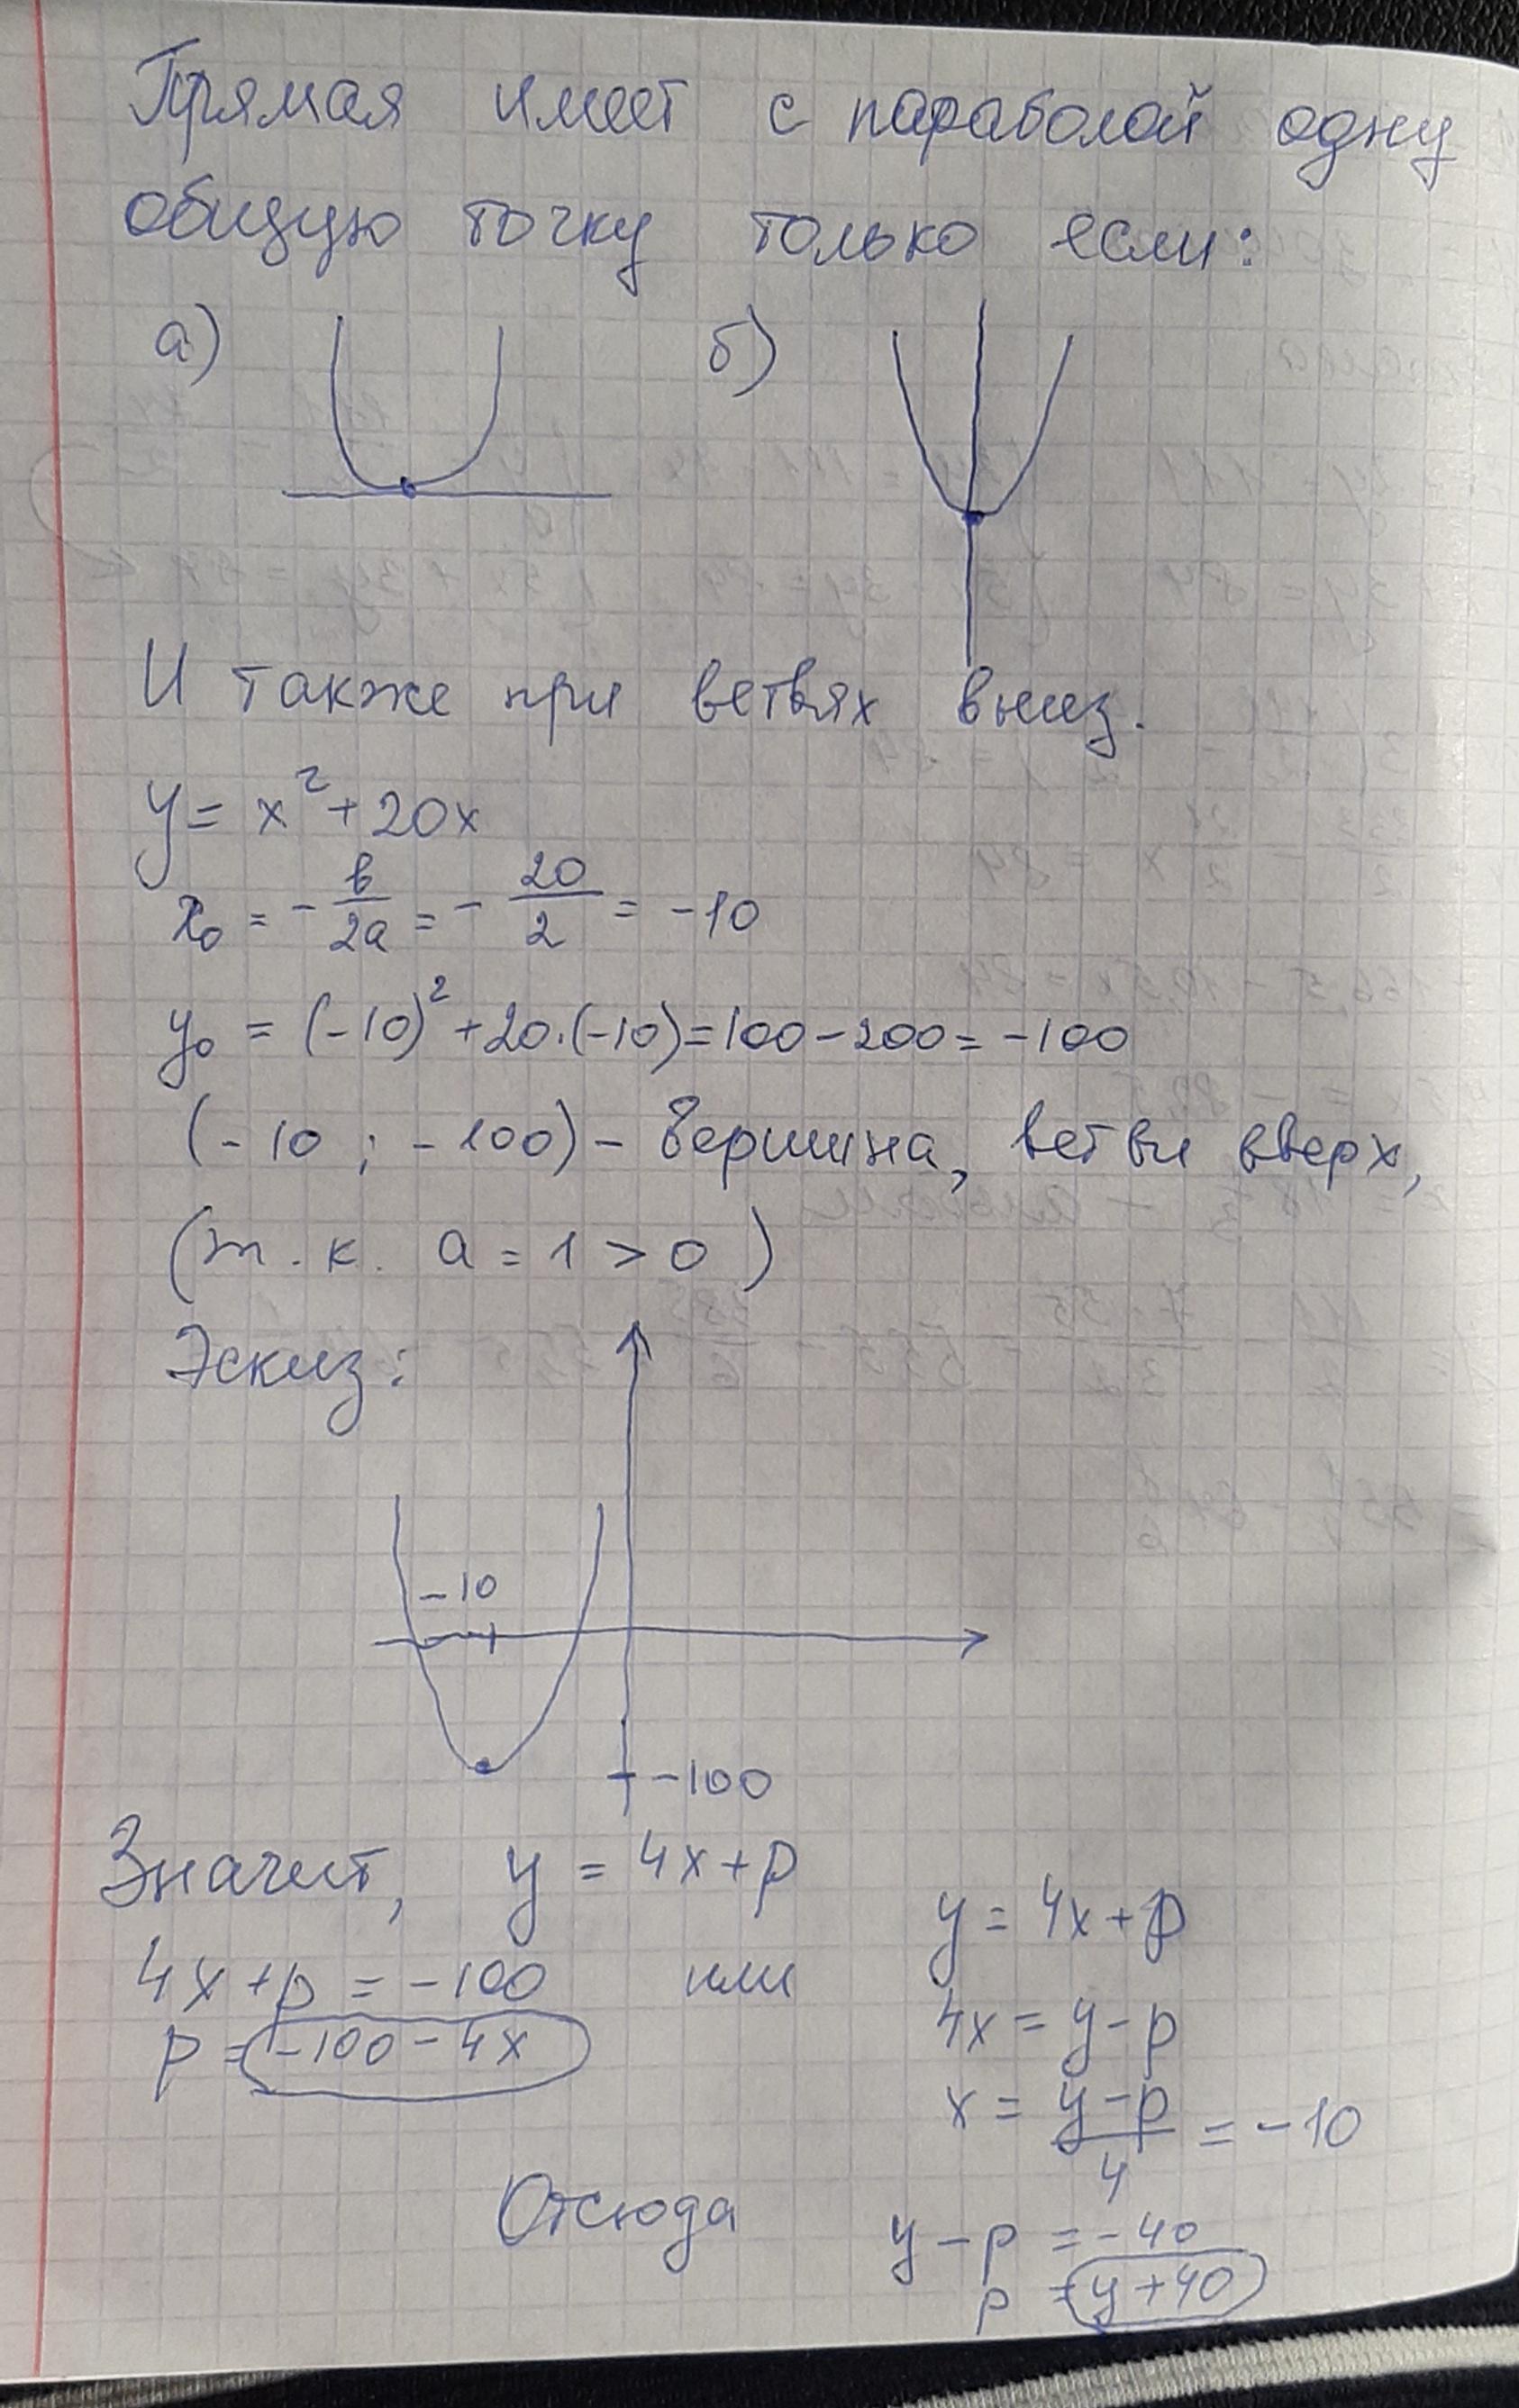 Прямая имеет с параболой одну
общую точку только если:
а) б)
И также при ветвях вниз.
y = x² + 20x
x₀ = - b/2a = - 20/2 = -10
y₀ = (-10)² + 20·(-10) = 100 - 200 = -100
(-10 ; -100) - вершина, ветви вверх,
(т.к. a = 1 > 0)
Эскиз:
-10
-100
Значит, y = 4x + p
4x + p = -100
p = -100 - 4x
или
y = 4x + p
4x = y - p
x = y - p/4 = -10
Отсюда
y - p = -40
p = y + 40